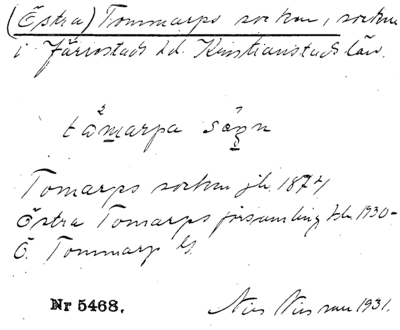 (Östra) Tommarps socken, socken
i Järrestads hd. Kristianstads län.
tåmarpa sågn
Tomarps socken jb. 1874
Östra Tomarps församling tk. 1930-
Ö. Tommarp
Nr 5468.
Nils Nilsson 1931.